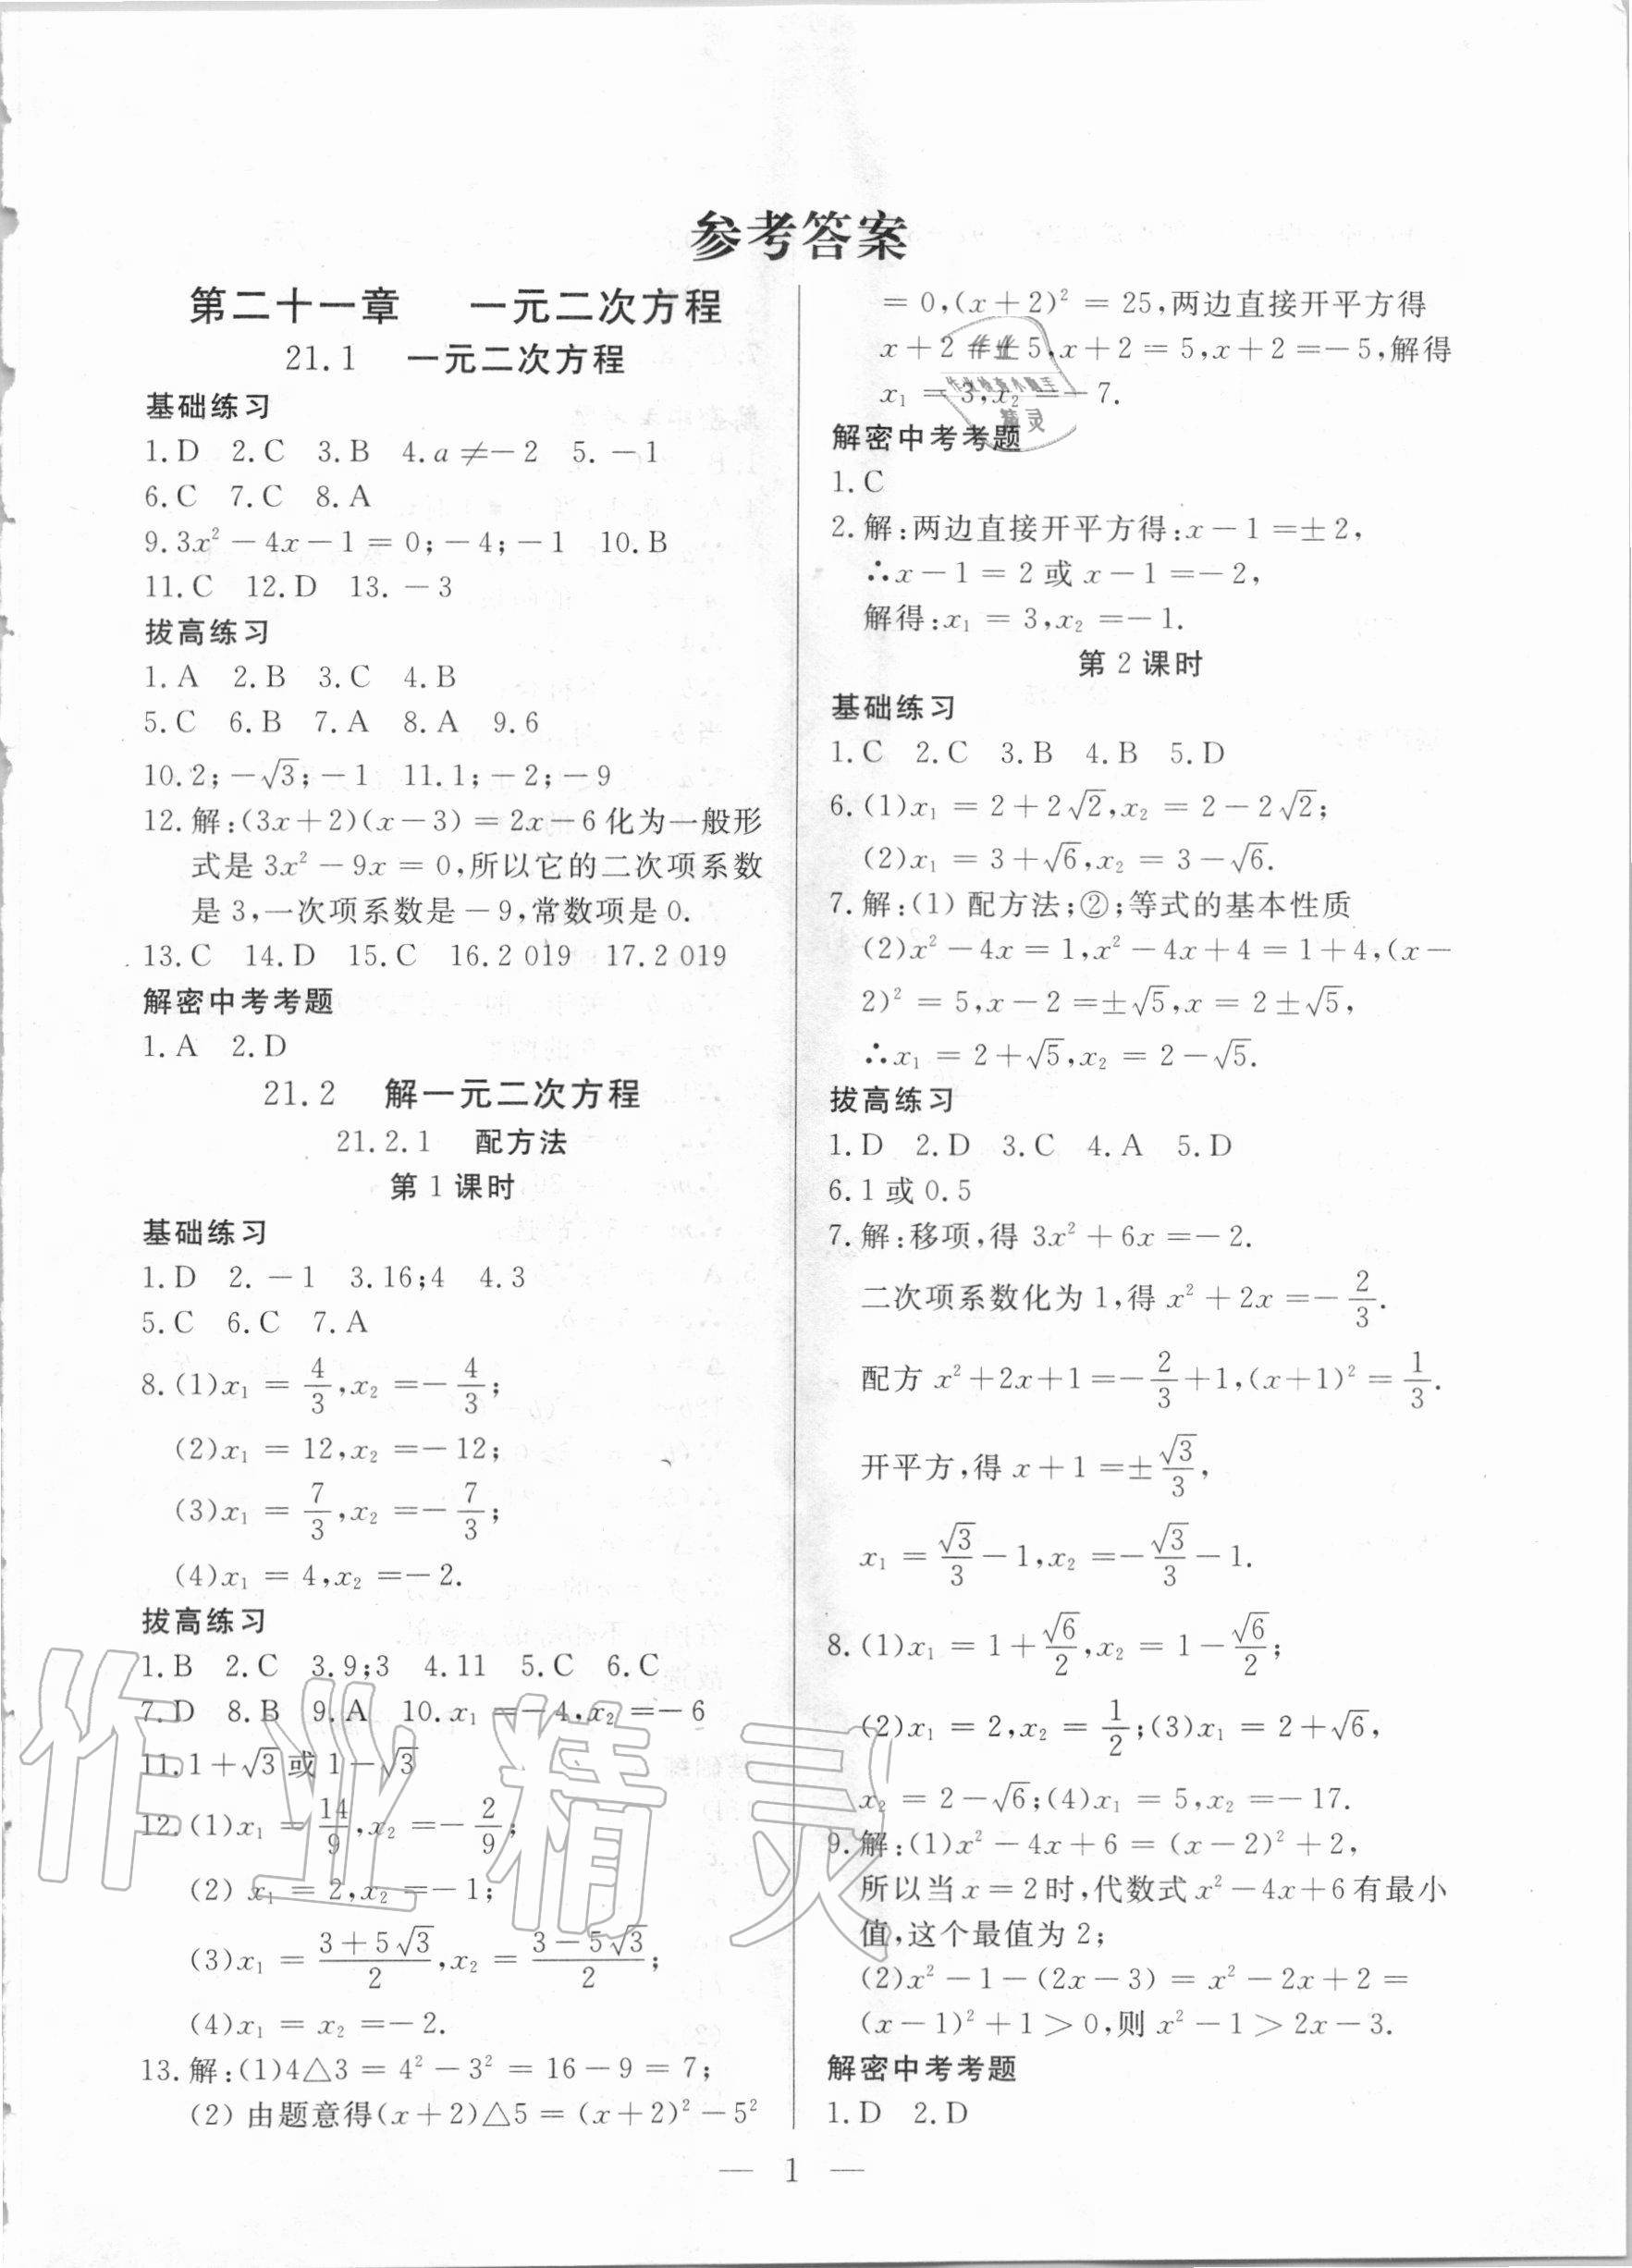 参考答案
第二十一章 一元二次方程
21.1 一元二次方程
基础练习
1.D 2.C 3.B 4.a≠-2 5.-1
6.C 7.C 8.A
9.3x²-4x-1=0;-4;-1 10.B
11.C 12.D 13.-3
拔高练习
1.A 2.B 3.C 4.B
5.C 6.B 7.A 8.A 9.6
10.2;-√3;-1 11.1;-2;-9
12.解:(3x+2)(x-3)=2x-6化为一般形
式是3x²-9x=0,所以它的二次项系数
是3,一次项系数是-9,常数项是0.
13.C 14.D 15.C 16.2 019 17.2 019
解密中考考题
1.A 2.D
21.2 解一元二次方程
21.2.1 配方法
第1课时
基础练习
1.D 2.-1 3.16;4 4.3
5.C 6.C 7.A
8.(1)x₁=4/3,x₂=-4/3;
(2)x₁=12,x₂=-12;
(3)x₁=7/3,x₂=-7/3;
(4)x₁=4,x₂=-2.
拔高练习
1.B 2.C 3.9;3 4.11 5.C 6.C
7.D 8.B 9.A 10.x₁=-4,x₂=-6
11.1+√3或1-√3
12.(1)x₁=14/9,x₂=-2/9;
(2)x₁=2,x₂=-1;
(3)x₁=(3+5√3)/2,x₂=(3-5√3)/2;
(4)x₁=x₂=-2.
13.解:(1)4△3=4²-3²=16-9=7;
(2)由题意得(x+2)△5=(x+2)²-5²
=0,(x+2)²=25,两边直接开平方得
x+2=±5,x+2=5,x+2=-5,解得
x₁=3,x₂=-7.
解密中考考题
1.C
2.解:两边直接开平方得:x-1=±2,
∴x-1=2或x-1=-2,
解得:x₁=3,x₂=-1.
第2课时
基础练习
1.C 2.C 3.B 4.B 5.D
6.(1)x₁=2+2√2,x₂=2-2√2;
(2)x₁=3+√6,x₂=3-√6.
7.解:(1)配方法;②;等式的基本性质
(2)x²-4x=1,x²-4x+4=1+4,(x-
2)²=5,x-2=±√5,x=2±√5,
∴x₁=2+√5,x₂=2-√5.
拔高练习
1.D 2.D 3.C 4.A 5.D
6.1或0.5
7.解:移项,得3x²+6x=-2.
二次项系数化为1,得x²+2x=-2/3.
配方x²+2x+1=-2/3+1,(x+1)²=1/3.
开平方,得x+1=±√3/3,
x₁=√3/3-1,x₂=-√3/3-1.
8.(1)x₁=1+√6/2,x₂=1-√6/2;
(2)x₁=2,x₂=1/2;(3)x₁=2+√6,
x₂=2-√6;(4)x₁=5,x₂=-17.
9.解:(1)x²-4x+6=(x-2)²+2,
所以当x=2时,代数式x²-4x+6有最小
值,这个最值为2;
(2)x²-1-(2x-3)=x²-2x+2=
(x-1)²+1>0,则x²-1>2x-3.
解密中考考题
1.D 2.D
— 1 —
作业精灵
作业
作业检查小助手
精灵